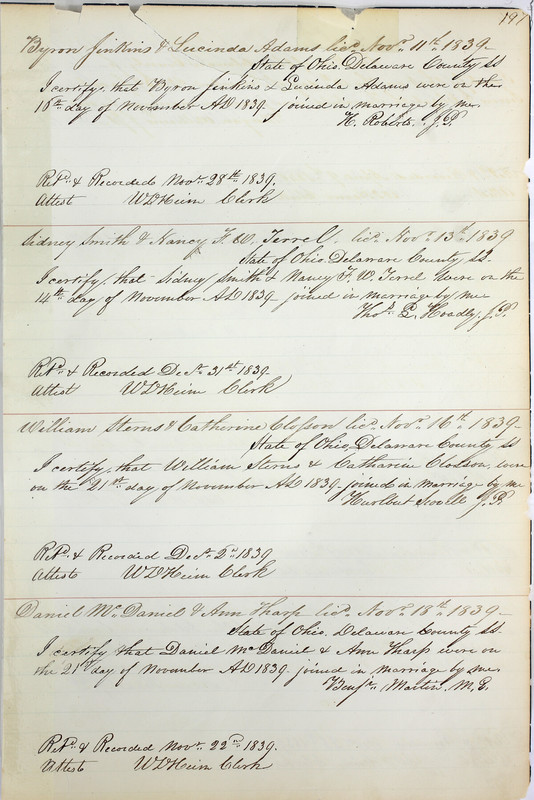 197
Byron Jinkins & Lucinda Adams licd. Novr. 11th. 1839
State of Ohio. Delaware County SS
I certify, that Byron Jinkins & Lucinda Adams were on the
18th day of November AD 1839 joined in marriage by me.
H. Roberts. J.P.
Retd. & Recorded Novr. 28th. 1839.
Attest W D Heim Clerk
Sidney Smith & Nancy F. W. Terrel, licd. Novr. 13th. 1839
State of Ohio Delaware County SS.
I certify, that Sidney Smith & Nancy F. W. Terrel were on the
14th day of November AD 1839 joined in marriage by me
Thos. P. Hoadly. J.P.
Retd. & Recorded Decr. 31st. 1839.
Attest W D Heim Clerk
William Sterns & Catherine Closson licd. Novr. 16th. 1839
State of Ohio, Delaware County SS
I certify, that William Sterns & Catharine Closson, were
on the 21st. day of November AD 1839. joined in marriage by me
Hurlbut J.P.
Retd. & Recorded Decr. 2d. 1839
Attest W D Heim Clerk
Daniel Mc. Daniel & Ann Tharp licd. Novr. 18th. 1839
State of Ohio. Delaware County SS.
I certify that Daniel Mc Daniel & Ann Tharp were on
the 21st day of November AD 1839 joined in marriage by me.
Benjn. Martin. M. E.
Retd. & Recorded Novr. 22nd. 1839.
Attest W D Heim Clerk